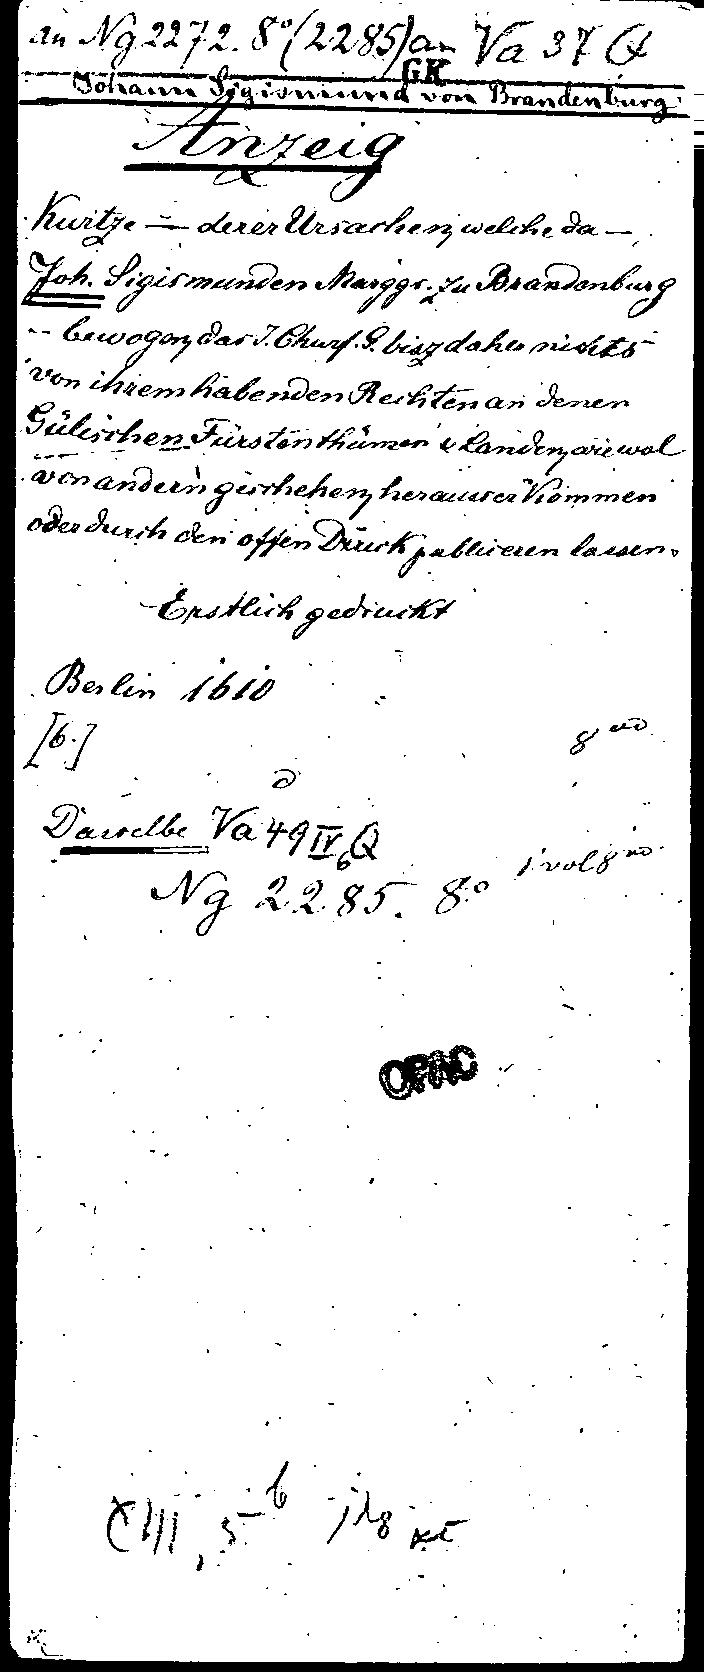 an Ng 2272. 8° (2285) an Va 37 Q
GK
Johann Sigismund von Brandenburg
Anzeig
Kurtze — derer Ursachen, welche da —
Joh. Sigismunden Marggr. zu Brandenburg
-- bewogen, das I. Churf. G. bisz daher nichts
von ihrem habenden Rechten an denen
Gülischen Fürstenthümern & Landen, wie wol
von andern geschehen, herausser kommen
oder durch den offen Druck publiceren lassen.
Erstlich gedruckt
Berlin 1610
[6.]
8 vo
Dasselbe Va 49 IV, Q
6
1 vol 8 vo
Ng 2285. 8°
OPAC
XIII, 5 b